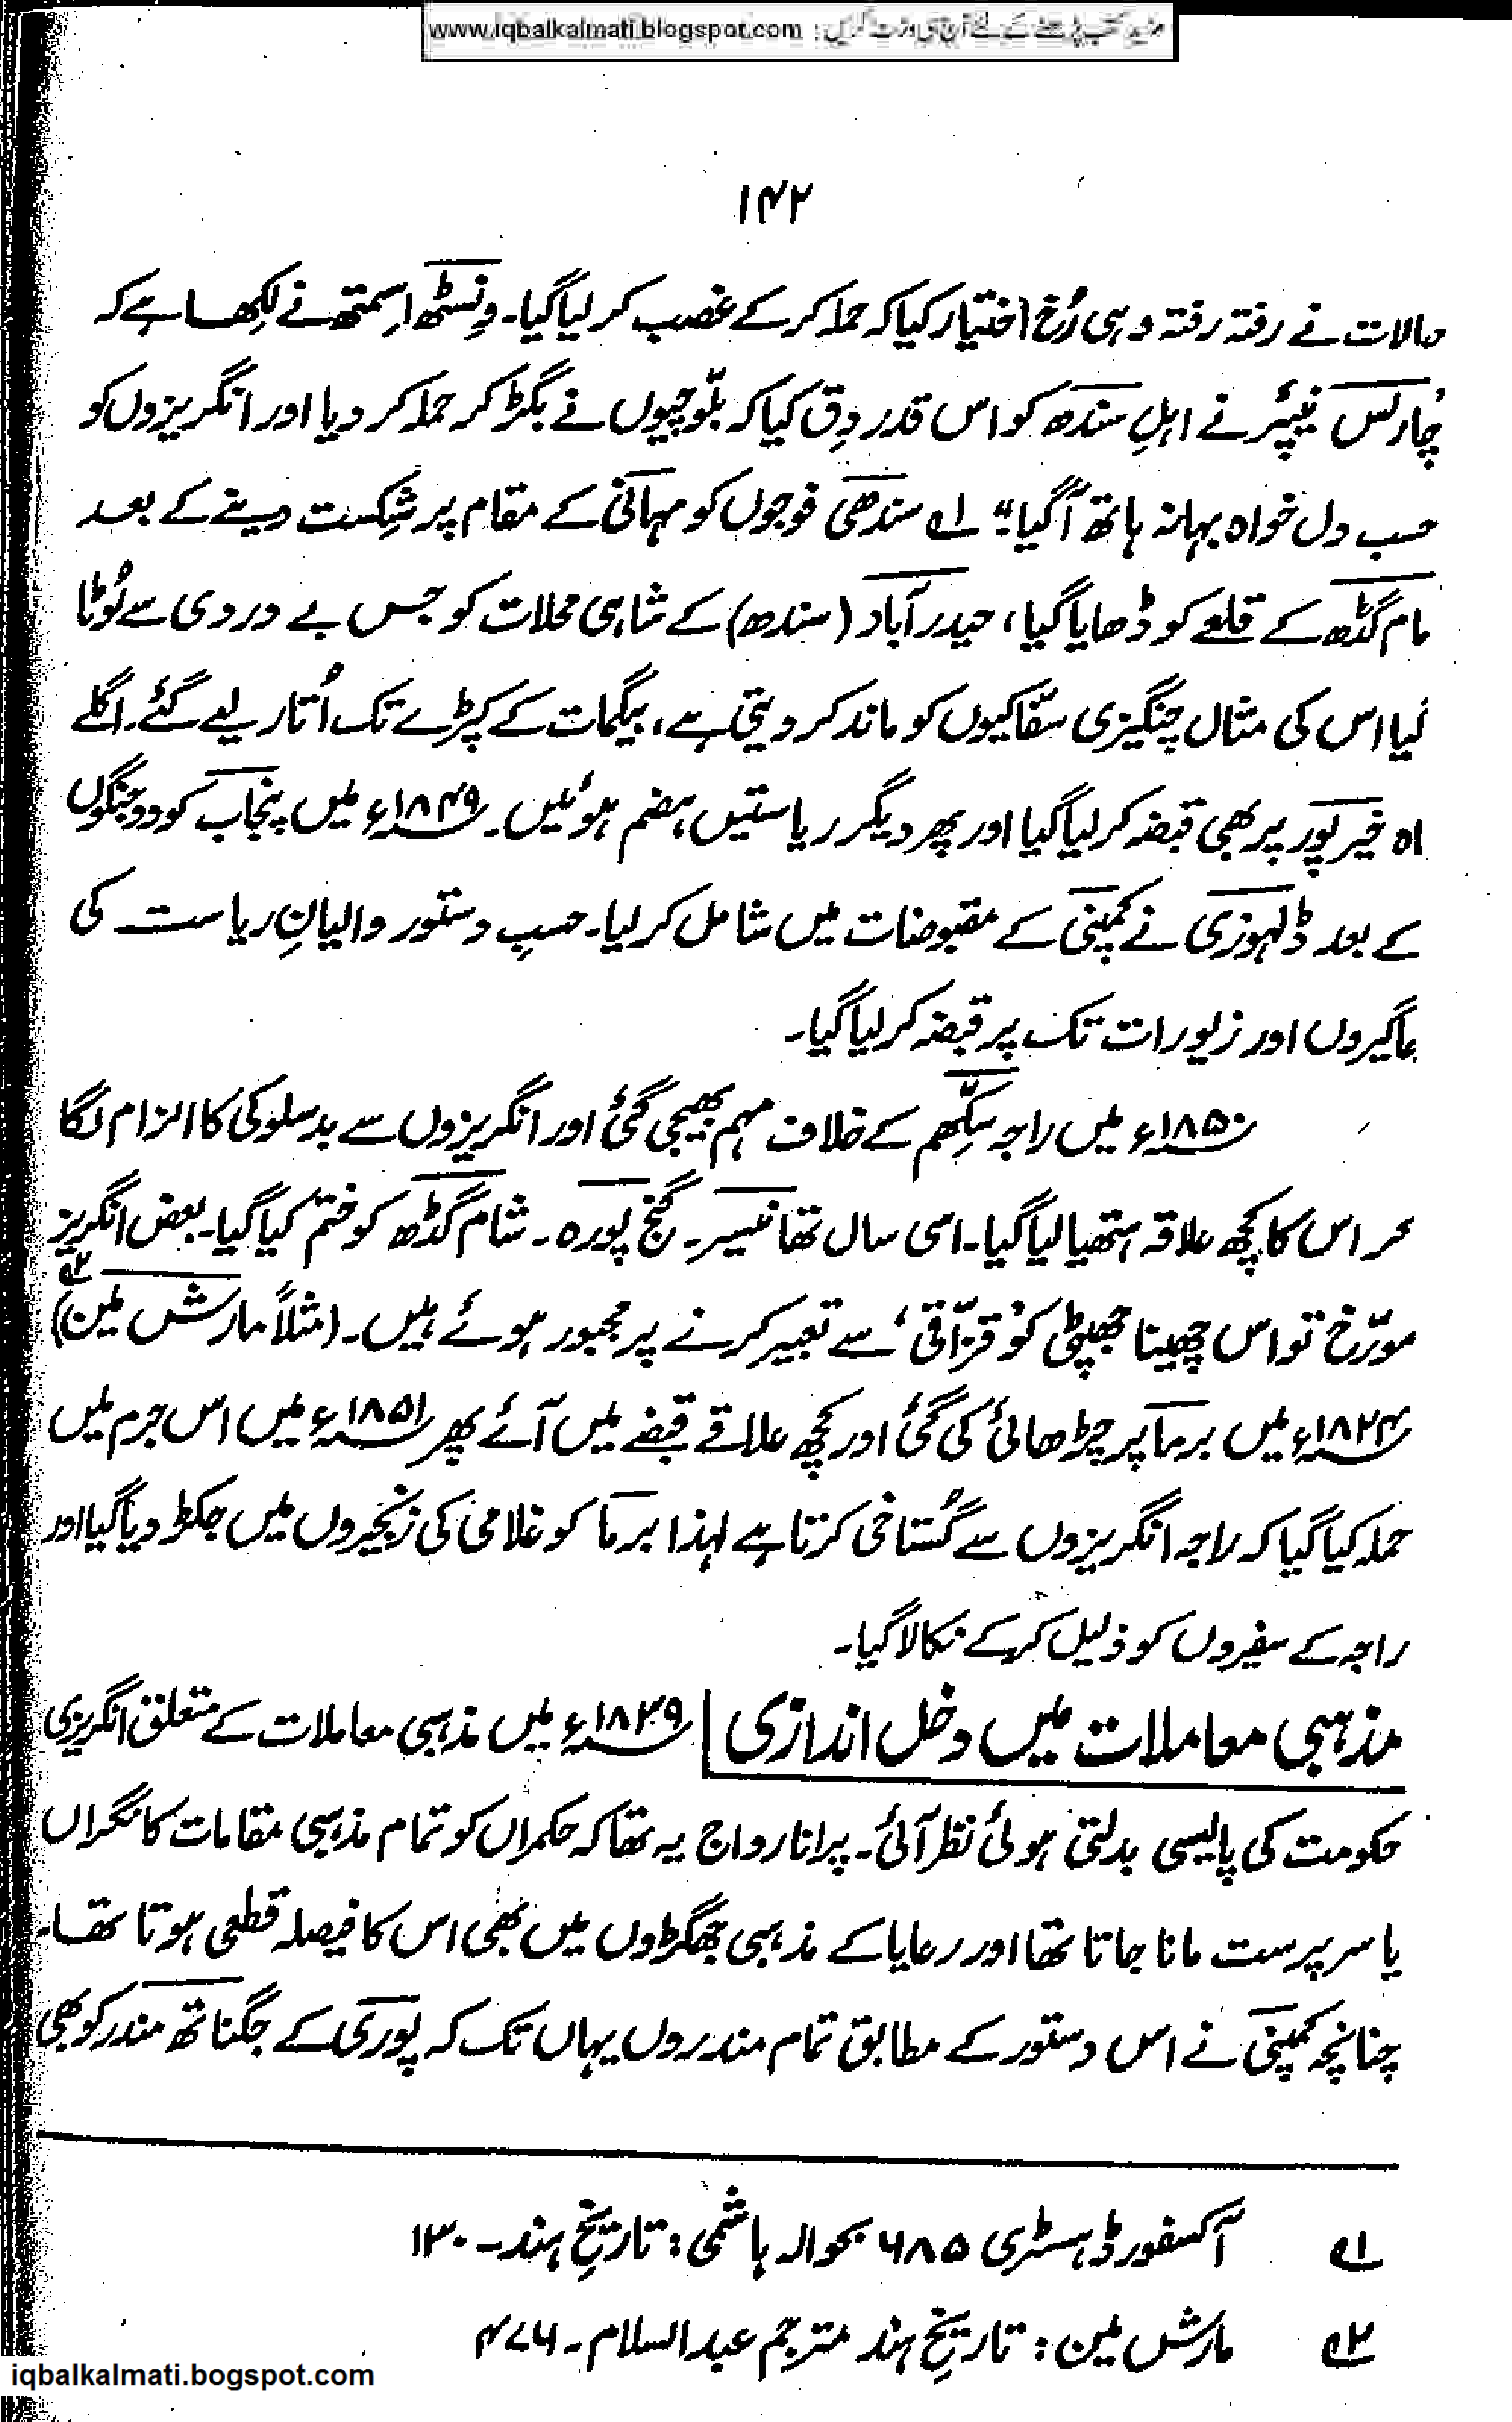 مزید کتب پڑھنے کے لئے آج ہی وزٹ کریں : www.iqbalkalmati.blogspot.com
۱۴۲
حالات نے رفتہ رفتہ وہی رُخ اختیار کیا کہ حملہ کر کے غصب کر لیا گیا۔ ونسٹھ اسمتھ نے لکھا ہے کہ
چارلس نیپیئر نے اہلِ سندھ کو اس قدر دِق کیا کہ بلّوچیوں نے بگڑ کر حملہ کر دیا اور انگریزوں کو
حسب دل خواہ بہانہ ہاتھ آ گیا" ؎۱ سندھی فوجوں کو مہانی کے مقام پر شکست دینے کے بعد
مام گڈھ کے قلعے کو ڈھایا گیا، حیدر آباد (سندھ) کے شاہی محلات کو جس بے دردی سے لُوٹا
گیا اس کی مثال چنگیزی سفّاکیوں کو ماند کر دیتی ہے، بیگمات کے کپڑے تک اُتار لیے گئے۔ اگلے
اہ خیر پور پر بھی قبضہ کر لیا گیا اور پھر دیگر ریاستیں ہضم ہوئیں۔ ۱۸۴۹ء میں پنجاب کو دو جنگوں
کے بعد ڈلہوزی نے کمپنی کے مقبوضات میں شامل کر لیا۔ حسبِ دستور والیانِ ریاست کی
جاگیروں اور زیورات تک پر قبضہ کر لیا گیا۔
۱۸۵۰ء میں راجہ سکّھم کے خلاف مہم بھیجی گئی اور انگریزوں سے بدسلوکی کا الزام لگا
کر اس کا کچھ علاقہ ہتھیا لیا گیا۔ اسی سال تھانیسر۔ گنج پورہ۔ شام گڈھ کو ختم کیا گیا۔ بعض انگریز
مورّخ تو اس چھینا جھپٹی کو 'قزّاقی' سے تعبیر کرنے پر مجبور ہوئے ہیں۔ (مثلاً مارش مین) ؎۲
۱۸۲۴ء میں برما پر چڑھائی کی گئی اور کچھ علاقے قبضے میں آئے پھر ۱۸۵۱ء میں اس جرم میں
حملہ کیا گیا کہ راجہ انگریزوں سے گُستاخی کرتا ہے لہذا برما کو غلامی کی زنجیروں میں جکڑ دیا گیا اور
راجہ کے سفیروں کو ذلیل کر کے نکالا گیا۔
مذہبی معاملات میں دخل اندازی | ۱۸۳۹ء میں مذہبی معاملات کے متعلق انگریزی
حکومت کی پالیسی بدلتی ہوئی نظر آئی۔ پرانا رواج یہ تھا کہ حکمراں کو تمام مذہبی مقامات کا نگراں
یا سرپرست مانا جاتا تھا اور رعایا کے مذہبی جھگڑوں میں بھی اس کا فیصلہ قطعی ہوتا تھا۔
چنانچہ کمپنی نے اس دستور کے مطابق تمام مندروں یہاں تک کہ پوری کے جگناتھ مندر کو بھی
؎۱ آکسفورڈ ہسٹری ۶۸۵ بحوالہ ہاشمی: تاریخِ ہند۔ ۱۳۰
؎۲ مارش مین: تاریخِ ہند مترجم عبدالسلام۔ ۴۷۶
iqbalkalmati.bogspot.com